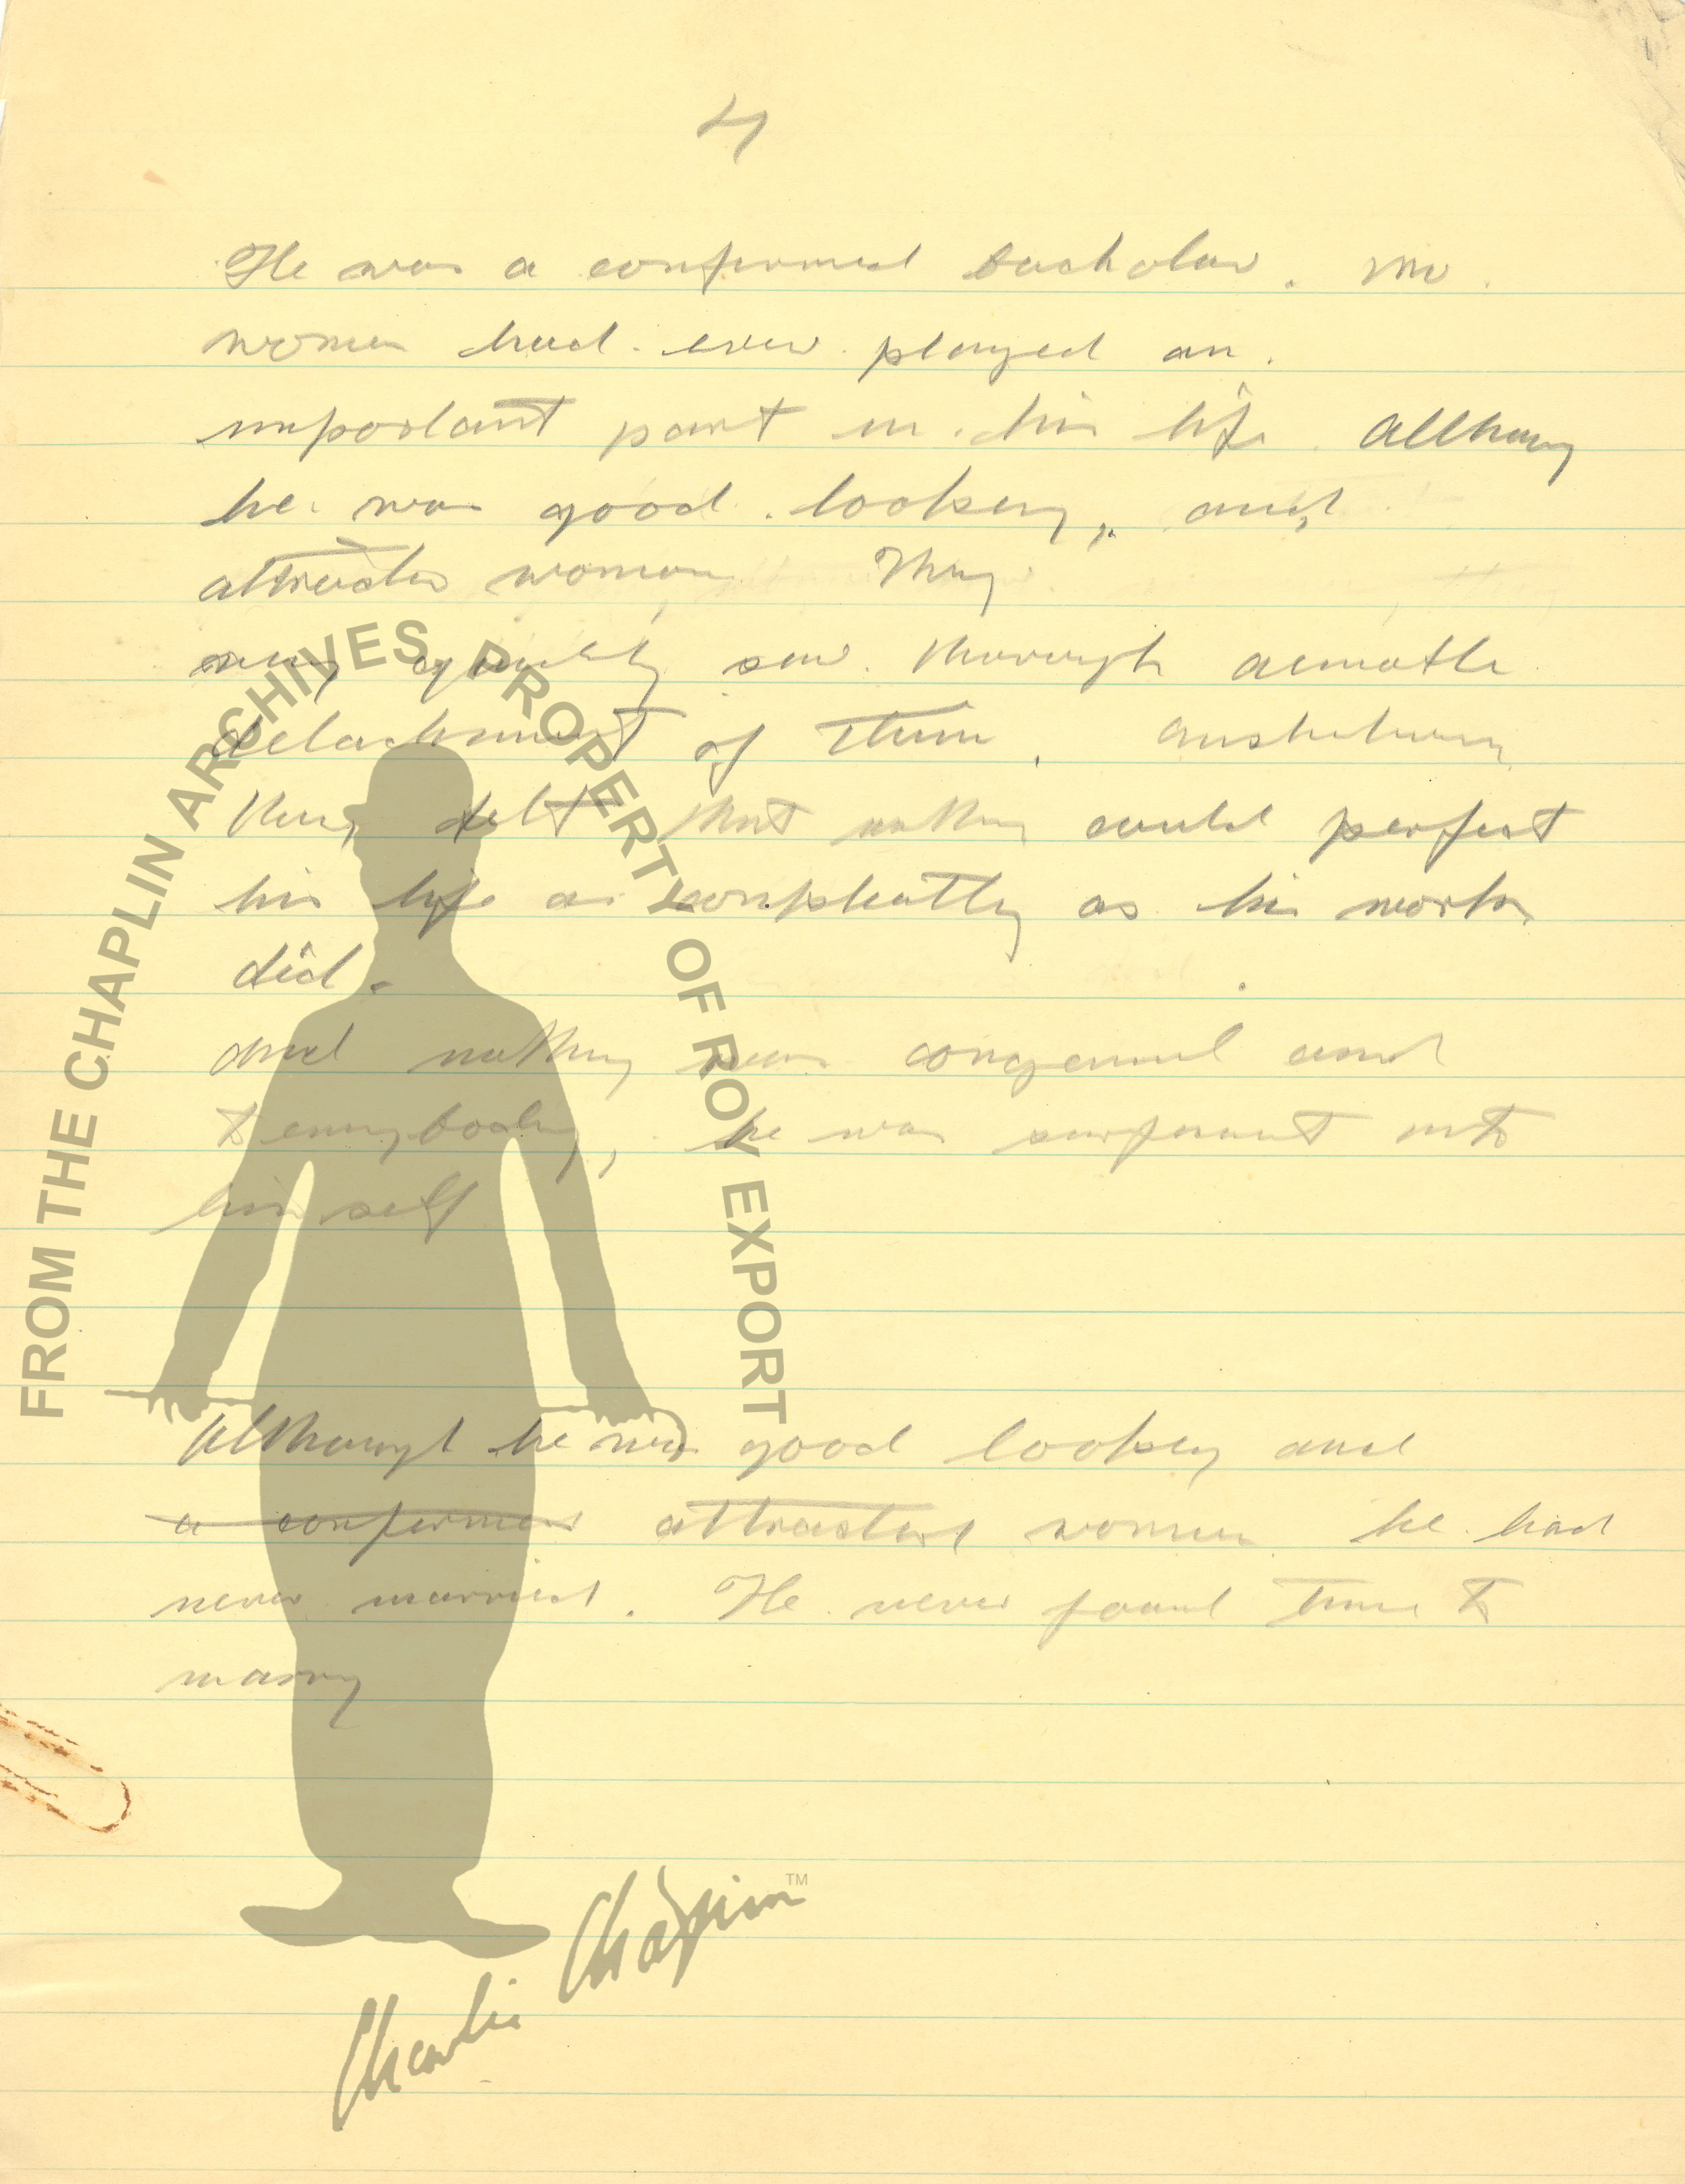 4
He was a confirmed bachelor. No
women had ever played an
important part in his life. Although
he was good looking, and
attracted women They
very quickly saw through
detachment of them.
They felt that nothing could perfect
his life as compleatly as his work
did.
and nothing was congenial and
to everybody, he was into
himself
Although he was good looking and
a confirmed attracted women he had
never married. He never found time to
marry
FROM THE CHAPLIN ARCHIVES. PROPERTY OF ROY EXPORT
Charlie Chaplin™